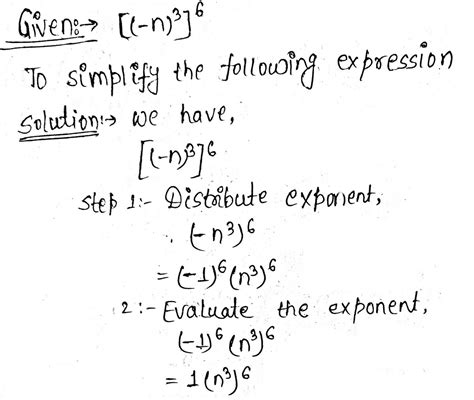 Given:→ [(-n)³]⁶
To simplify the following expression
Solution:→ we have,
[(-n)³]⁶
Step 1:- Distribute exponent,
(-n³)⁶
= (-1)⁶(n³)⁶
2:- Evaluate the exponent,
(-1)⁶(n³)⁶
= 1(n³)⁶